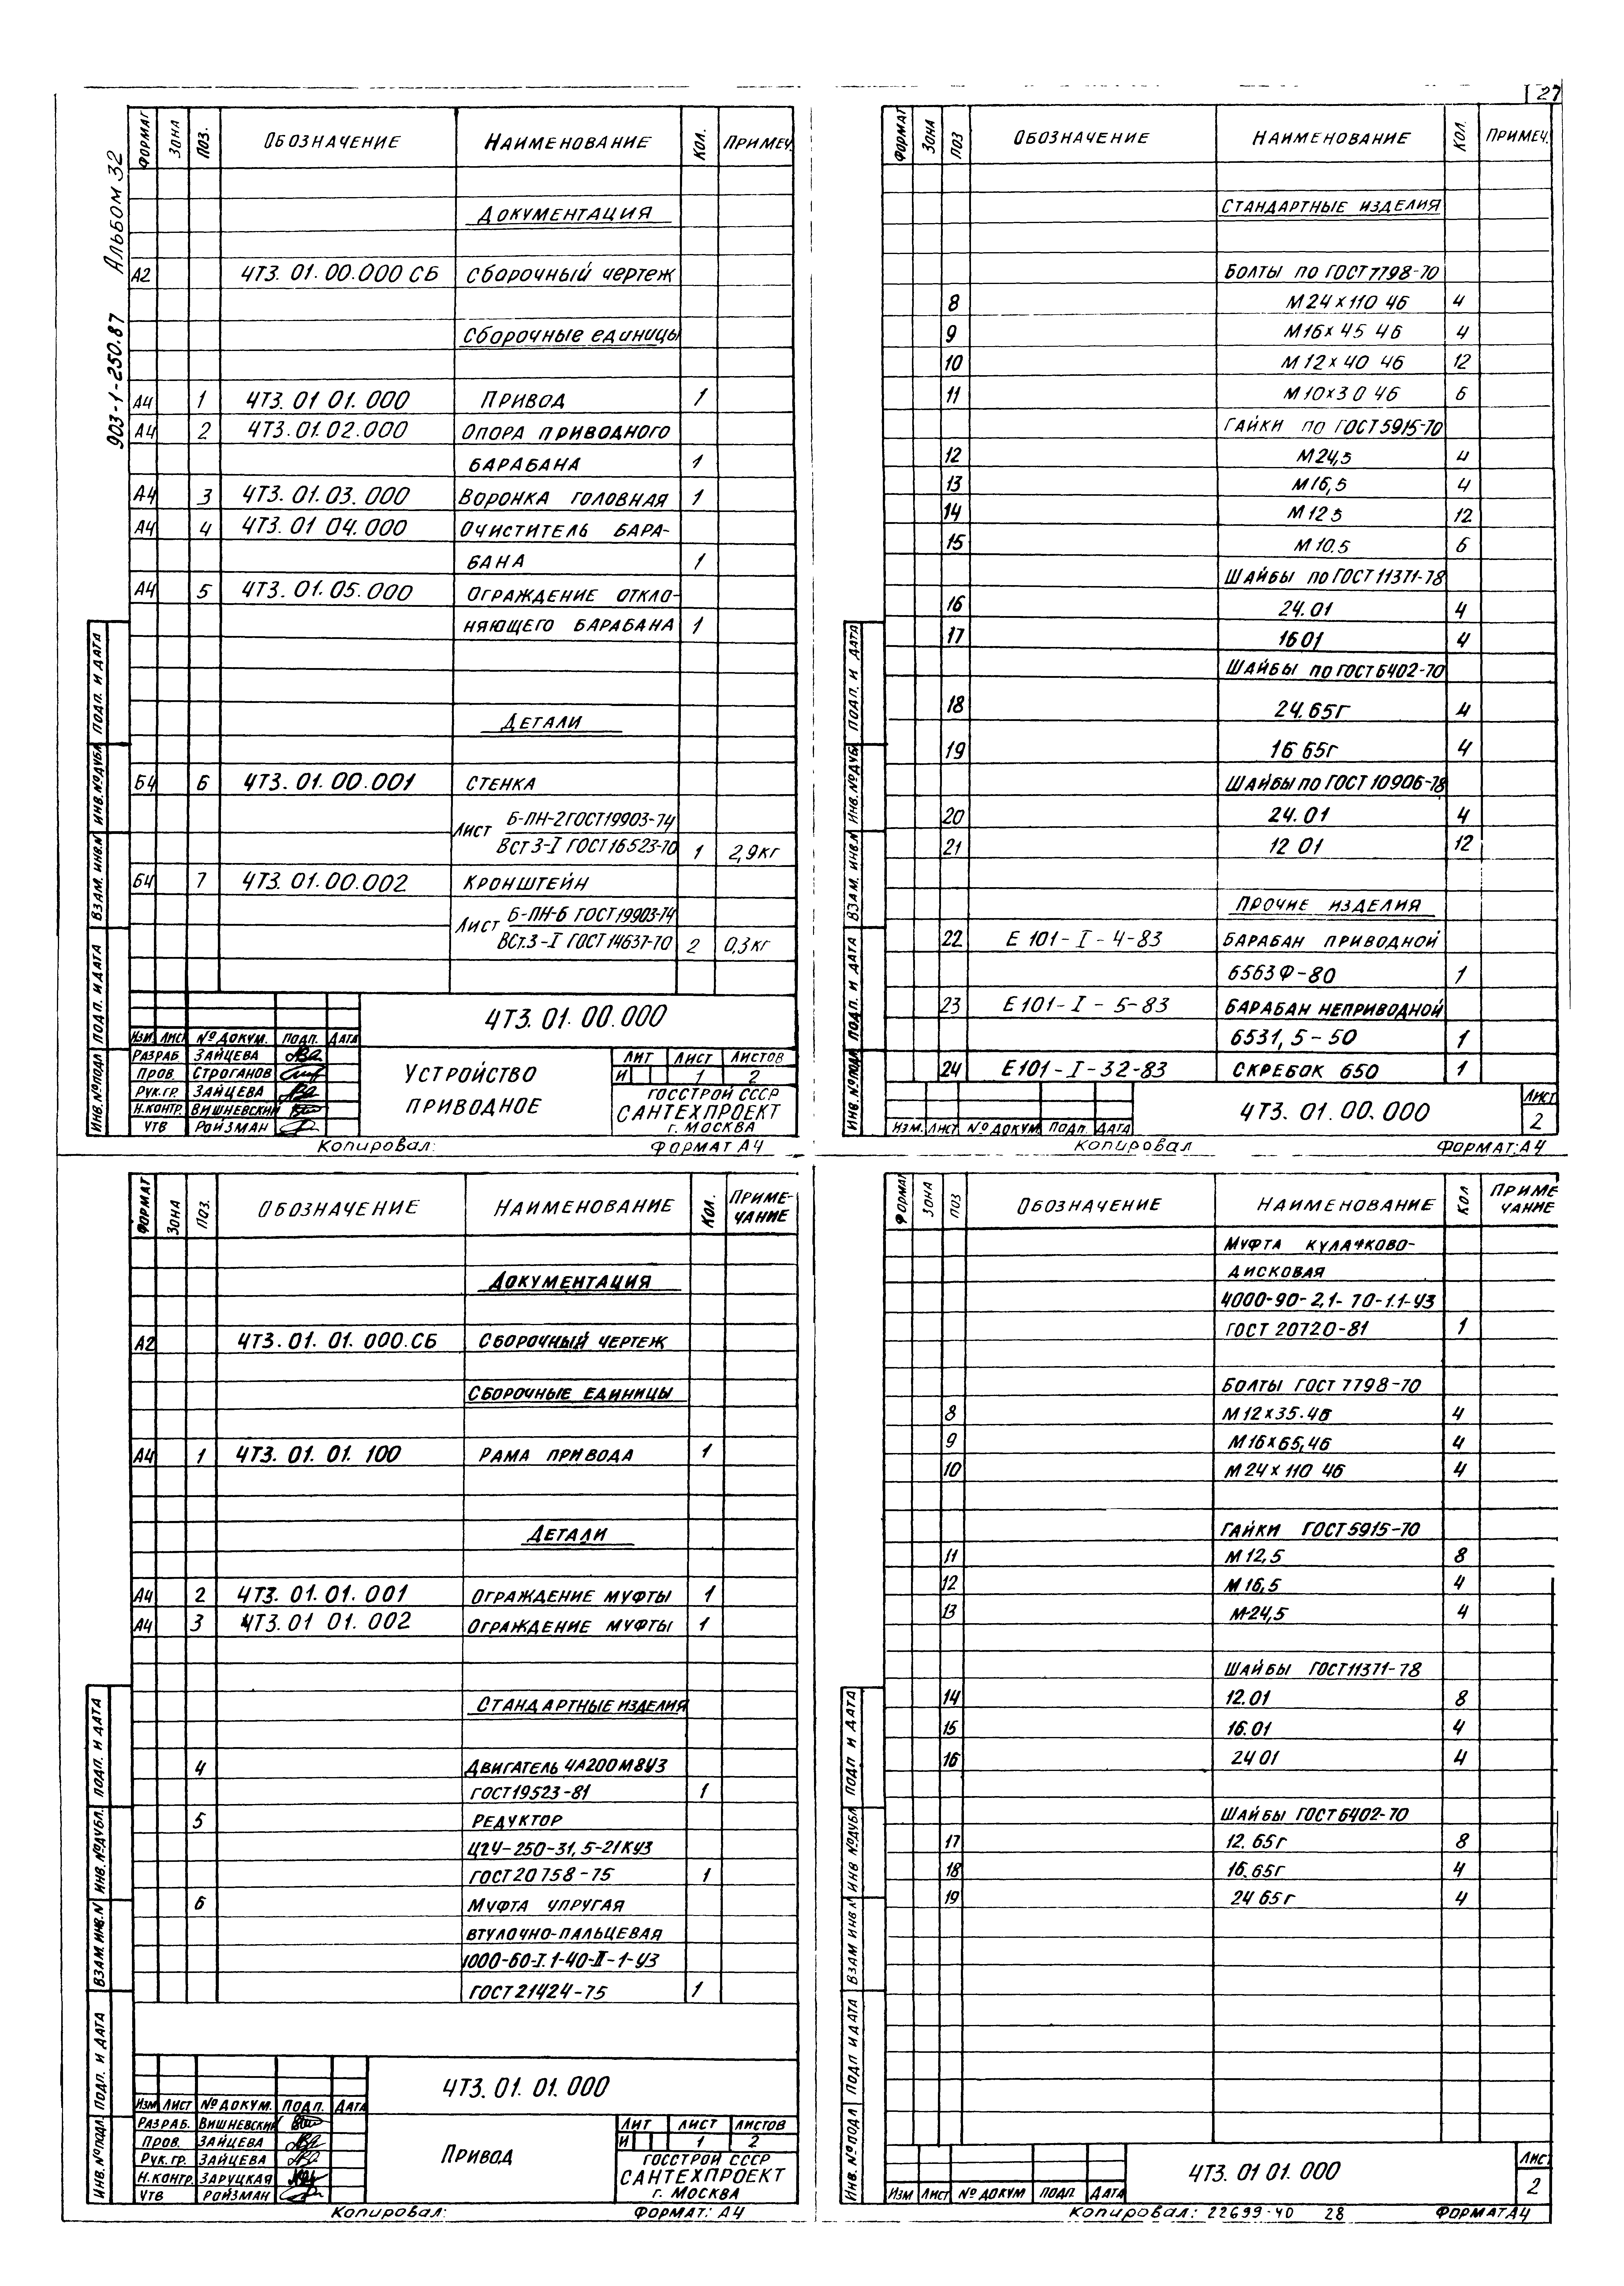 27
Альбом 32
903-1-250.87
ФОРМАТ ЗОНА ПОЗ. ОБОЗНАЧЕНИЕ НАИМЕНОВАНИЕ КОЛ. ПРИМЕЧ.
ДОКУМЕНТАЦИЯ
А2 4ТЗ. 01. 00. 000 СБ СБОРОЧНЫЙ ЧЕРТЕЖ
СБОРОЧНЫЕ ЕДИНИЦЫ
А4 1 4ТЗ. 01 01. 000 ПРИВОД 1
А4 2 4ТЗ. 01. 02. 000 ОПОРА ПРИВОДНОГО
БАРАБАНА 1
А4 3 4ТЗ. 01. 03. 000 ВОРОНКА ГОЛОВНАЯ 1
А4 4 4ТЗ. 01 04. 000 ОЧИСТИТЕЛЬ БАРА-
БАНА 1
А4 5 4ТЗ. 01. 05. 000 ОГРАЖДЕНИЕ ОТКЛО-
НЯЮЩЕГО БАРАБАНА 1
ДЕТАЛИ
Б4 6 4ТЗ. 01. 00. 001 СТЕНКА
ЛИСТ Б-ПН-2 ГОСТ 19903-74
ВСт 3-I ГОСТ 16523-70 1 2,9 кг
Б4 7 4ТЗ. 01. 00. 002 КРОНШТЕЙН
ЛИСТ Б-ПН-6 ГОСТ 19903-74
ВСт.3-I ГОСТ 14637-70 2 0,3 кг
ИНВ. № ПОДЛ ПОДП. И ДАТА ВЗАМ. ИНВ. № ИНВ. № ДУБЛ ПОДП. И ДАТА
4ТЗ. 01. 00. 000
ИЗМ ЛИСТ № ДОКУМ. ПОДП. ДАТА
РАЗРАБ ЗАЙЦЕВА
ПРОВ. СТРОГАНОВ
РУК. ГР. ЗАЙЦЕВА
Н. КОНТР. ВИШНЕВСКИЙ
УТВ РОЙЗМАН
УСТРОЙСТВО
ПРИВОДНОЕ
ЛИТ ЛИСТ ЛИСТОВ
И 1 2
ГОССТРОЙ СССР
САНТЕХПРОЕКТ
г. МОСКВА
КОПИРОВАЛ: ФОРМАТ А4
ФОРМАТ ЗОНА ПОЗ ОБОЗНАЧЕНИЕ НАИМЕНОВАНИЕ КОЛ. ПРИМЕЧ.
СТАНДАРТНЫЕ ИЗДЕЛИЯ
БОЛТЫ ПО ГОСТ 7798-70
8 М24х110 46 4
9 М16х45 46 4
10 М12х40 46 12
11 М10х30 46 6
ГАЙКИ ПО ГОСТ 5915-70
12 М24,5 4
13 М16,5 4
14 М12 5 12
15 М10.5 6
ШАЙБЫ ПО ГОСТ 11371-78
16 24. 01 4
17 16 01 4
ШАЙБЫ ПО ГОСТ 6402-70
18 24. 65Г 4
19 16 65Г 4
ШАЙБЫ ПО ГОСТ 10906-78
20 24. 01 4
21 12 01 12
ПРОЧИЕ ИЗДЕЛИЯ
22 Е 101-I-4-83 БАРАБАН ПРИВОДНОЙ
6563Ф-80 1
23 Е 101-I-5-83 БАРАБАН НЕПРИВОДНОЙ
6531, 5-50 1
24 Е101-I-32-83 СКРЕБОК 650 1
ИНВ. № ПОДЛ ПОДП. И ДАТА ВЗАМ. ИНВ. № ИНВ. № ДУБЛ ПОДП. И ДАТА
4ТЗ. 01. 00. 000
ИЗМ. ЛИСТ № ДОКУМ ПОДП. ДАТА
ЛИСТ
2
КОПИРОВАЛ ФОРМАТ: А4
ФОРМАТ ЗОНА ПОЗ. ОБОЗНАЧЕНИЕ НАИМЕНОВАНИЕ КОЛ. ПРИМЕ-
ЧАНИЕ
ДОКУМЕНТАЦИЯ
А2 4ТЗ. 01. 01. 000. СБ СБОРОЧНЫЙ ЧЕРТЕЖ
СБОРОЧНЫЕ ЕДИНИЦЫ
А4 1 4ТЗ. 01. 01. 100 РАМА ПРИВОДА 1
ДЕТАЛИ
А4 2 4ТЗ. 01. 01. 001 ОГРАЖДЕНИЕ МУФТЫ 1
А4 3 4ТЗ. 01 01. 002 ОГРАЖДЕНИЕ МУФТЫ 1
СТАНДАРТНЫЕ ИЗДЕЛИЯ
4 ДВИГАТЕЛЬ 4А200М8У3
ГОСТ 19523-81 1
5 РЕДУКТОР
Ц2У-250-31,5-21КУ3
ГОСТ 20758-75 1
6 МУФТА УПРУГАЯ
ВТУЛОЧНО-ПАЛЬЦЕВАЯ
1000-60-I.1-40-II-1-У3
ГОСТ 21424-75 1
ИНВ. № ПОДЛ ПОДП. И ДАТА ВЗАМ. ИНВ. № ИНВ. № ДУБЛ. ПОДП. И ДАТА
4ТЗ. 01. 01. 000
ИЗМ ЛИСТ № ДОКУМ. ПОДП. ДАТА
РАЗРАБ. ВИШНЕВСКИЙ
ПРОВ. ЗАЙЦЕВА
РУК. ГР. ЗАЙЦЕВА
Н. КОНТР. ЗАРУЦКАЯ
УТВ РОЙЗМАН
ПРИВОД
ЛИТ ЛИСТ ЛИСТОВ
И 1 2
ГОССТРОЙ СССР
САНТЕХПРОЕКТ
г. МОСКВА
КОПИРОВАЛ: ФОРМАТ: А4
ФОРМАТ ЗОНА ПОЗ ОБОЗНАЧЕНИЕ НАИМЕНОВАНИЕ КОЛ ПРИМЕ
ЧАНИЕ
МУФТА КУЛАЧКОВО-
ДИСКОВАЯ
4000-90-2,1-70-1.1-У3
ГОСТ 20720-81 1
БОЛТЫ ГОСТ 7798-70
8 М12х35.46 4
9 М16х65,46 4
10 М24х110 46 4
ГАЙКИ ГОСТ 5915-70
11 М12,5 8
12 М16,5 4
13 М24,5 4
ШАЙБЫ ГОСТ 11371-78
14 12.01 8
15 16.01 4
16 24 01 4
ШАЙБЫ ГОСТ 6402-70
17 12. 65Г 8
18 16. 65Г 4
19 24 65Г 4
ИНВ. № ПОДЛ ПОДП И ДАТА ВЗАМ ИНВ № ИНВ № ДУБЛ ПОДП И ДАТА
4ТЗ. 01 01. 000
ИЗМ ЛИСТ № ДОКУМ ПОДП. ДАТА
ЛИСТ
2
КОПИРОВАЛ: 22699-40 28 ФОРМАТ А4